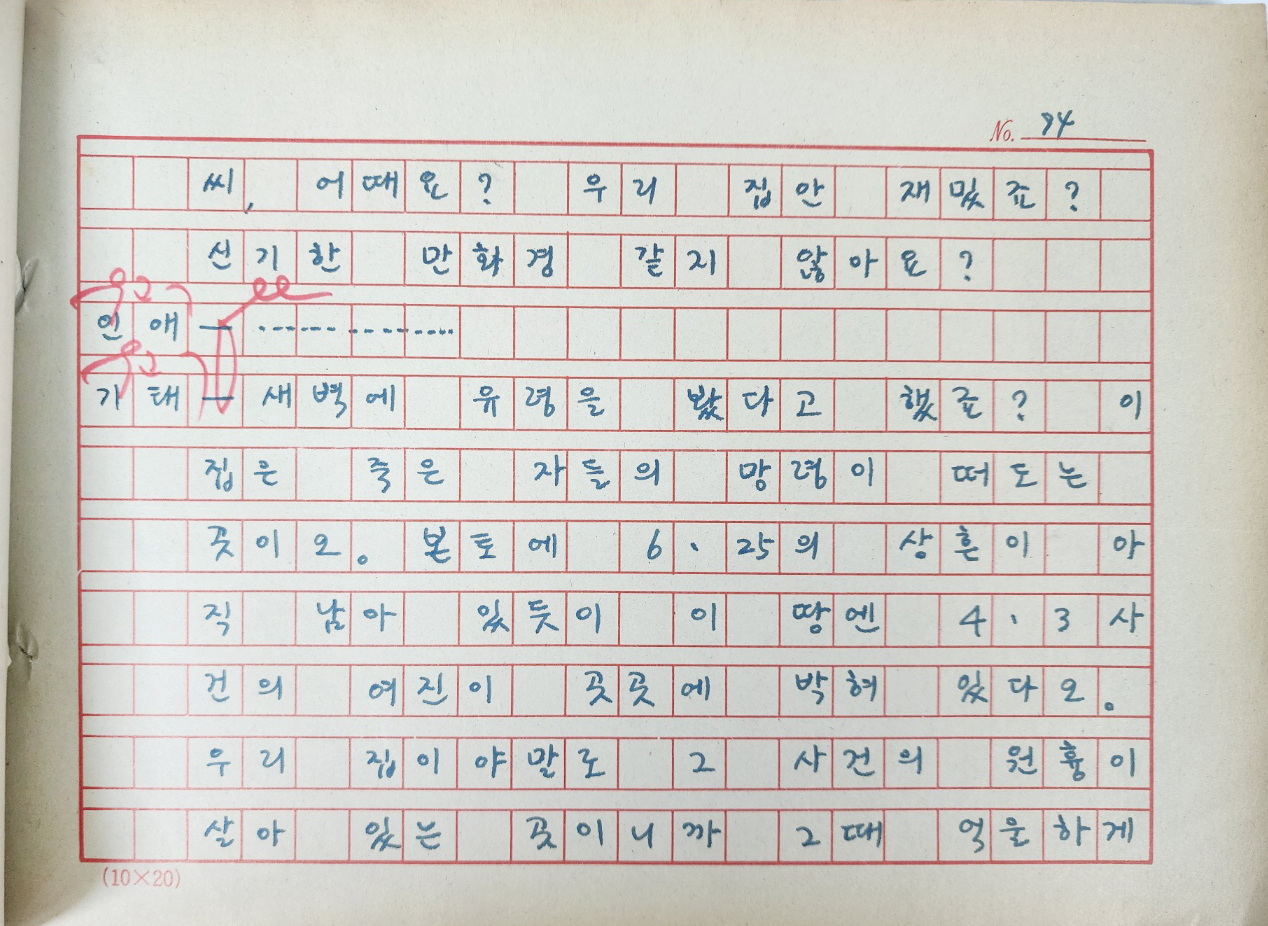 No. 94
씨, 어때요? 우리 집안 재밌죠?
신기한 만화경 같지 않아요?
인애 — ··················
기태 — 새벽에 유령을 봤다고 했죠? 이
집은 죽은 자들의 망령이 떠도는
곳이오. 본토에 6·25의 상흔이 아
직 남아 있듯이 이 땅엔 4·3 사
건의 여진이 곳곳에 박혀 있다오.
우리 집이야말로 그 사건의 원흉이
살아 있는 곳이니까 그때 억울하게
(10×20)